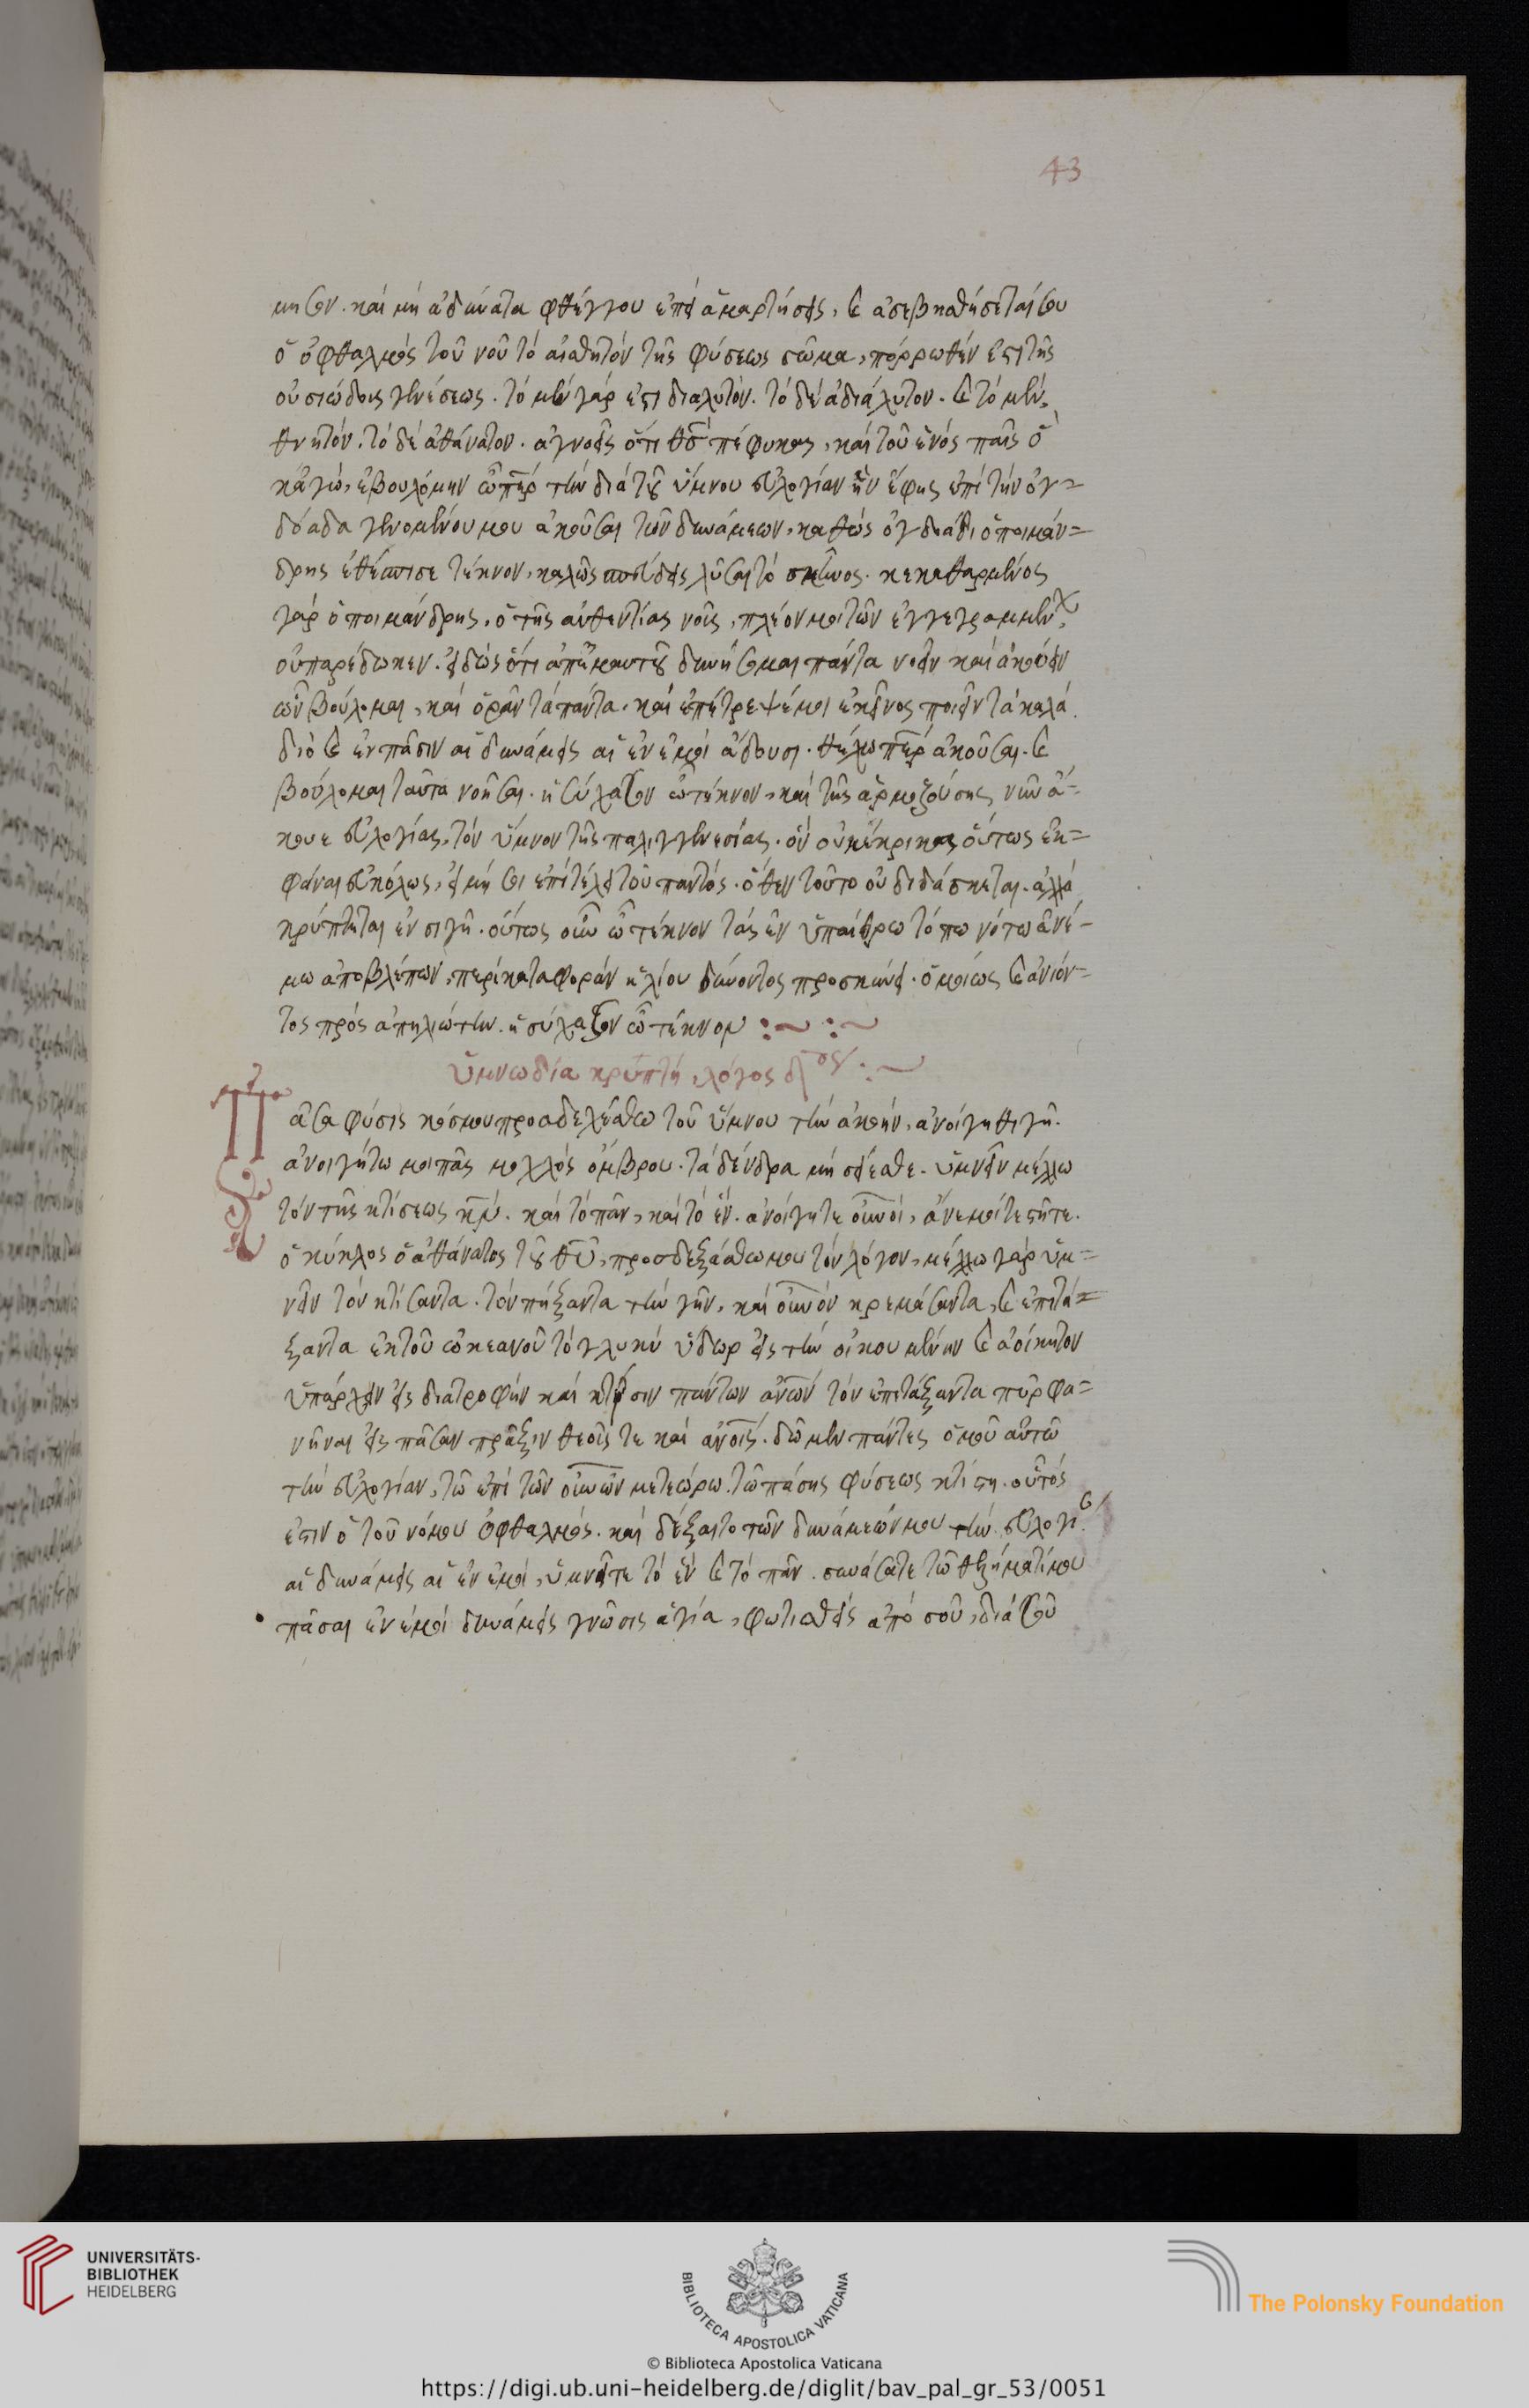 43
μησον. καὶ μὴ ἀδύνατα φθέγγου ἐπεὶ ἁμαρτήσεις, καὶ ἀσεβηθήσεταί σου
ὁ ὀφθαλμὸς τοῦ νοῦ τὸ αἰσθητὸν τῆς φύσεως σῶμα, πόρρωθέν ἐστι τῆς
οὐσιώδους γενέσεως. τὸ μὲν γάρ ἐστι διαλυτόν. τὸ δὲ ἀδιάλυτον. καὶ τὸ μὲν,
θνητόν. τὸ δὲ ἀθάνατον. ἀγνοεῖς ὅτι θς πέφυκας, καὶ τοῦ ἑνὸς παῖς ὃ
κἀγώ, ἐβουλόμην ὦ περ τὴν διὰ τοῦ ὕμνου εὐλογίαν ἣν ἔφης ἐπὶ τὴν ὀγ=
δόαδα γενομένου μου ἀκοῦσαι τῶν δυνάμεων, καθὼς ὀγδοάδι ὁ ποιμάν=
δρης ἐθέσπισε τέκνον, καλῶς σπεύδεις λῦσαι τὸ σκῆνος. κεκαθαρμένος
γὰρ ὁ ποιμάνδρης, ὁ τῆς αὐθεντίας νοῦς, πλέον μοι τῶν ἐγγεγραμμένων
οὐ παρέδωκεν. εἰδὼς ὅτι ἀπ' ἐμαυτοῦ δυνήσομαι πάντα νοεῖν καὶ ἀκούειν
ὧν βούλομαι, καὶ ὁρᾶν τὰ πάντα. καὶ ἐπέτρεψέ μοι ἐκεῖνος ποιεῖν τὰ καλά.
διὸ καὶ ἐν πᾶσιν αἱ δυνάμεις αἱ ἐν ἐμοὶ ᾄδουσι. θέλω περ ἀκοῦσαι. καὶ
βούλομαι ταῦτα νοῆσαι. ἡσύχασον ὦ τέκνον, καὶ τῆς ἁρμοζούσης νῦν ἄ=
κουε εὐλογίας, τὸν ὕμνον τῆς παλιγγενεσίας. ὃν οὐκ ἔκρινας οὕτως ἐκ=
φάναι εὐκόλως, εἰ μή σοι ἐπὶ τέλει τοῦ παντός. ὅθεν τοῦτο οὐ διδάσκεται. ἀλλὰ
κρύπτεται ἐν σιγῇ. οὕτως οὖν ὦ τέκνον στὰς ἐν ὑπαίθρω τόπω νότω ἀνέ=
μω ἀποβλέπων, περὶ καταφορὰν ἡλίου δύνοντος προσκύνει. ὁμοίως καὶ ἀνιόν=
τος πρὸς ἀπηλιώτην. ἡσύχασον ὦ τέκνον :~ :~
ὑμνωδία κρυπτή, λόγος δος :~
Πᾶσα φύσις κόσμου προσδεχέσθω τοῦ ὕμνου τὴν ἀκοήν, ἀνοίγηθι γῆ.
ἀνοιγήτω μοι πᾶς μοχλὸς ὄμβρου. τὰ δένδρα μὴ σείεσθε. ὑμνεῖν μέλλω
τὸν τῆς κτίσεως κν. καὶ τὸ πᾶν, καὶ τὸ ἕν. ἀνοίγητε οὐνοί, ἄνεμοί τε στῆτε.
ὁ κύκλος ὁ ἀθάνατος τοῦ θυ, προσδεξάσθω μου τὸν λόγον, μέλλω γὰρ ὑμ=
νεῖν τὸν κτίσαντα. τὸν πήξαντα τὴν γῆν, καὶ οὐνὸν κρεμάσαντα, καὶ ἐπιτά=
ξαντα ἐκ τοῦ ὠκεανοῦ τὸ γλυκὺ ὕδωρ εἰς τὴν οἰκουμένην καὶ ἀοίκητον
ὑπάρχειν εἰς διατροφὴν καὶ κτίσιν πάντων ἀνων τὸν ἐπιτάξαντα πῦρ φα=
νῆναι εἰς πᾶσαν πρᾶξιν θεοῖς τε καὶ ἀνοις. δῶμεν πάντες ὁμοῦ αὐτῶ
τὴν εὐλογίαν, τῶ ἐπὶ τῶν οὐνων μετεώρω, τῶ πάσης φύσεως κτίστη. οὗτός
ἐστιν ὁ τοῦ νόμου ὀφθαλμός. καὶ δέξαιτο τῶν δυνάμεών μου τὴν εὐλογί
αἱ δυνάμεις αἱ ἐν ἐμοί, ὑμνεῖτε τὸ ἓν καὶ τὸ πᾶν. συνάσατε τῶ θελήματί μου
πᾶσαι ἐν ἐμοὶ δυνάμεις γνῶσις ἁγία, φωτισθεὶς ἀπὸ σοῦ, διὰ σοῦ
UNIVERSITÄTS-
BIBLIOTHEK
HEIDELBERG
BIBLIOTECA APOSTOLICA VATICANA
The Polonsky Foundation
© Biblioteca Apostolica Vaticana
https://digi.ub.uni-heidelberg.de/diglit/bav_pal_gr_53/0051